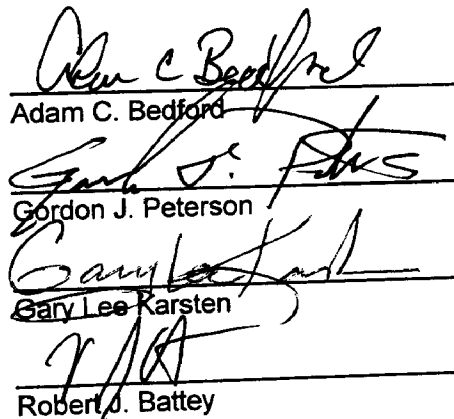 Adam C Bedford
Adam C. Bedford
Gordon J. Peterson
Gary Lee Karsten
Gary Lee Karsten
Robert J. Battey